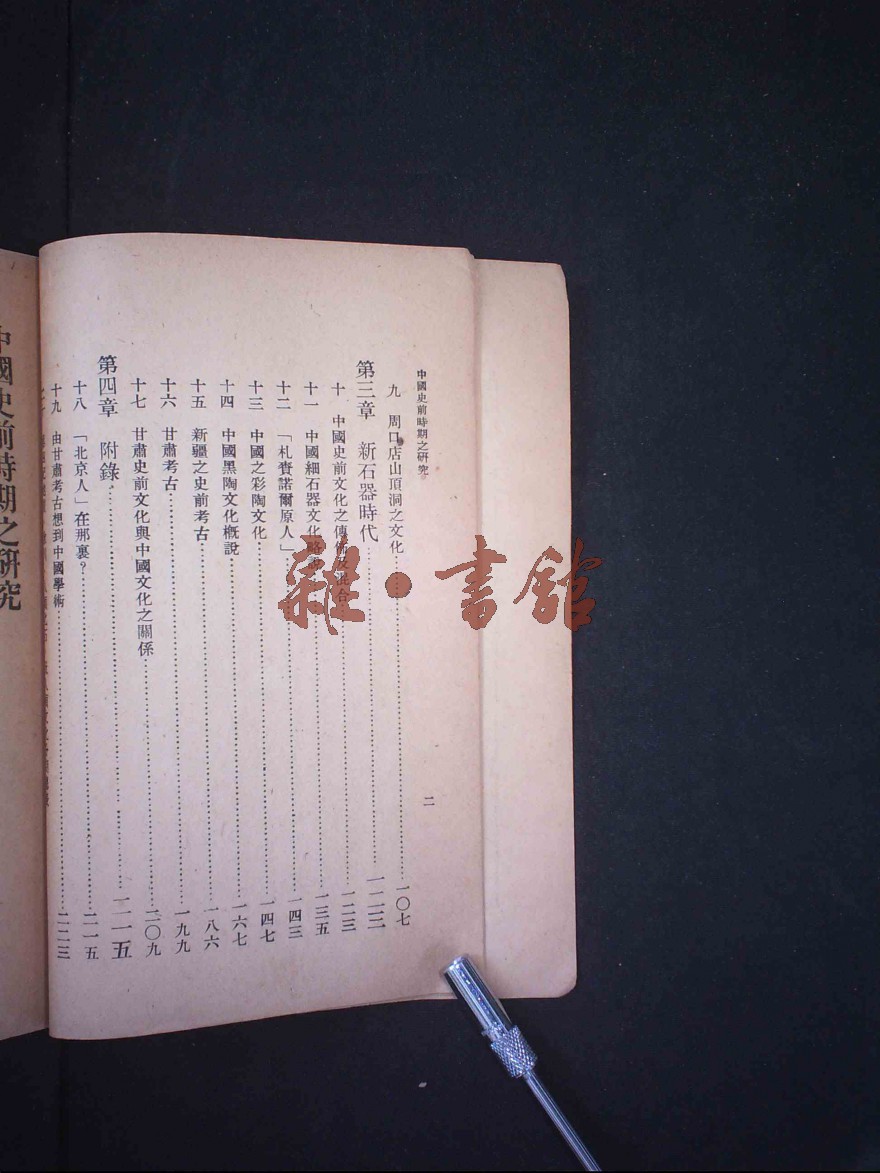 中國史前時期之研究
二
九 周口店山頂洞之文化 一〇七
第三章 新石器時代 一二三
十 中國史前文化之傳佈及混合 一二三
十一 中國細石器文化略說 一三五
十二 「札賚諾爾原人」 一四三
十三 中國之彩陶文化 一四七
十四 中國黑陶文化概說 一六七
十五 新疆之史前考古 一八六
十六 甘肅考古 一九九
十七 甘肅史前文化與中國文化之關係 二〇九
第四章 附錄 二一五
十八 「北京人」在那裏？ 二一五
十九 由甘肅考古想到中國學術 二二三
中國史前時期之研究
雜·書館